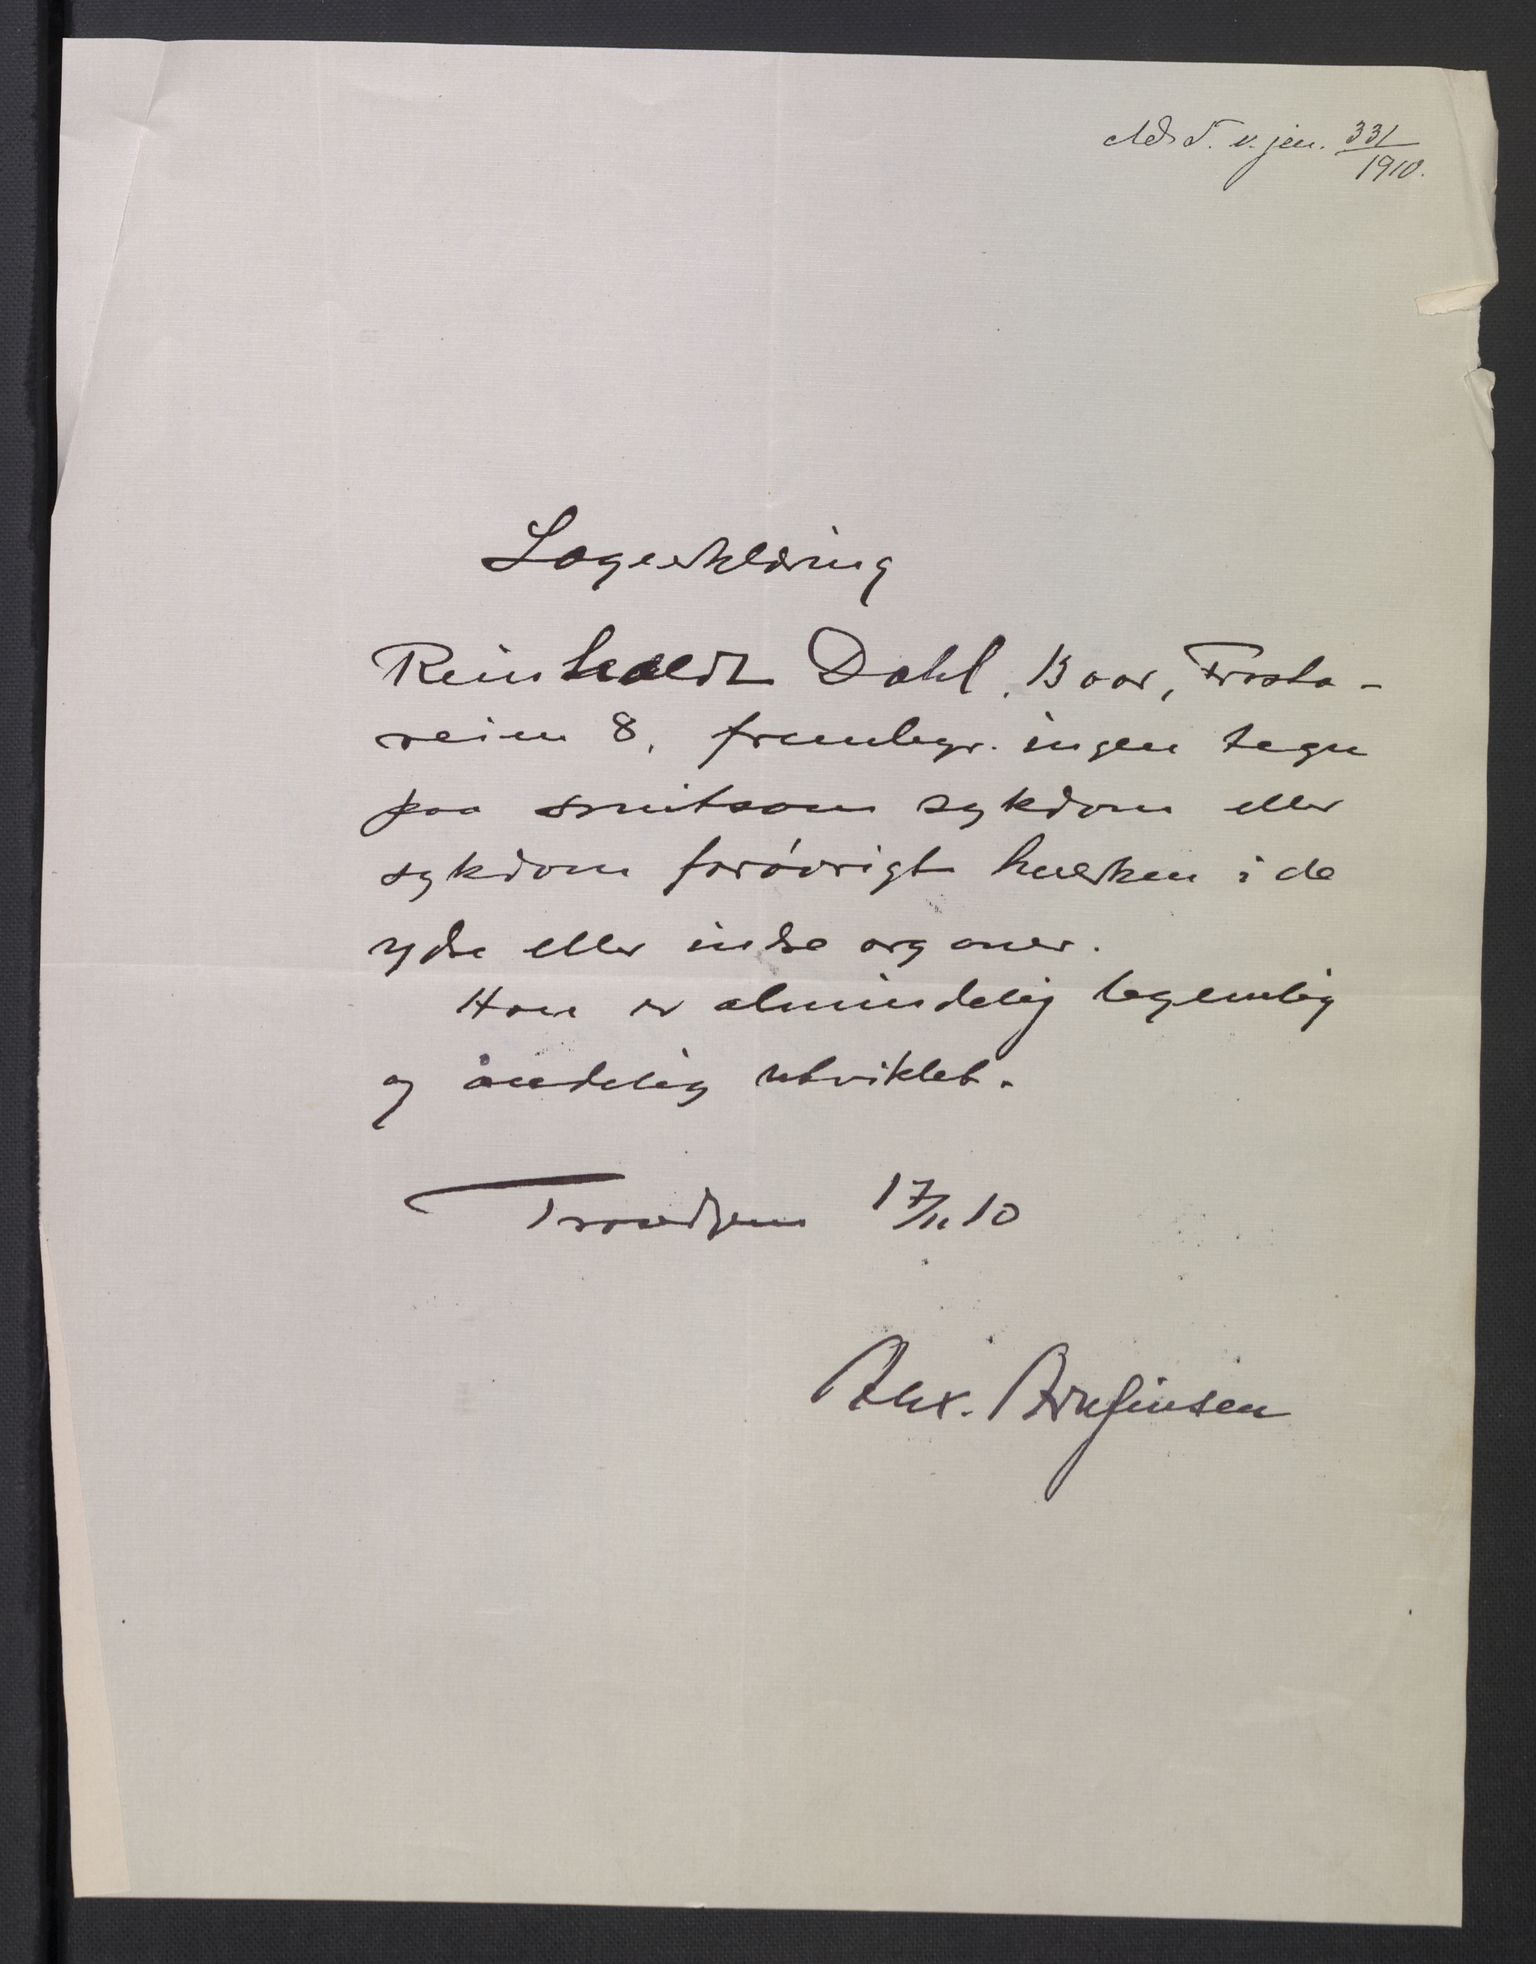 T. v. jrn. 331/1910.
Lægeerklæring
Reinholdt Dahl, 13 aar, Frosta-
veien 8, frembyr. ingen tegn
paa smitsom sykdom eller
sykdom forøvrigt hverken i de
ydre eller indre organer.
Han er almindelig legemlig
og åndelig utviklet.
Trondhjem 17/11 10
Alex. Brinchmann